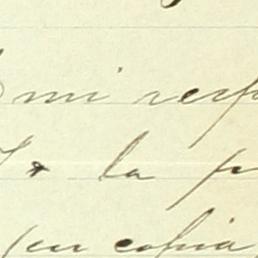 mi resp
la p
en copia